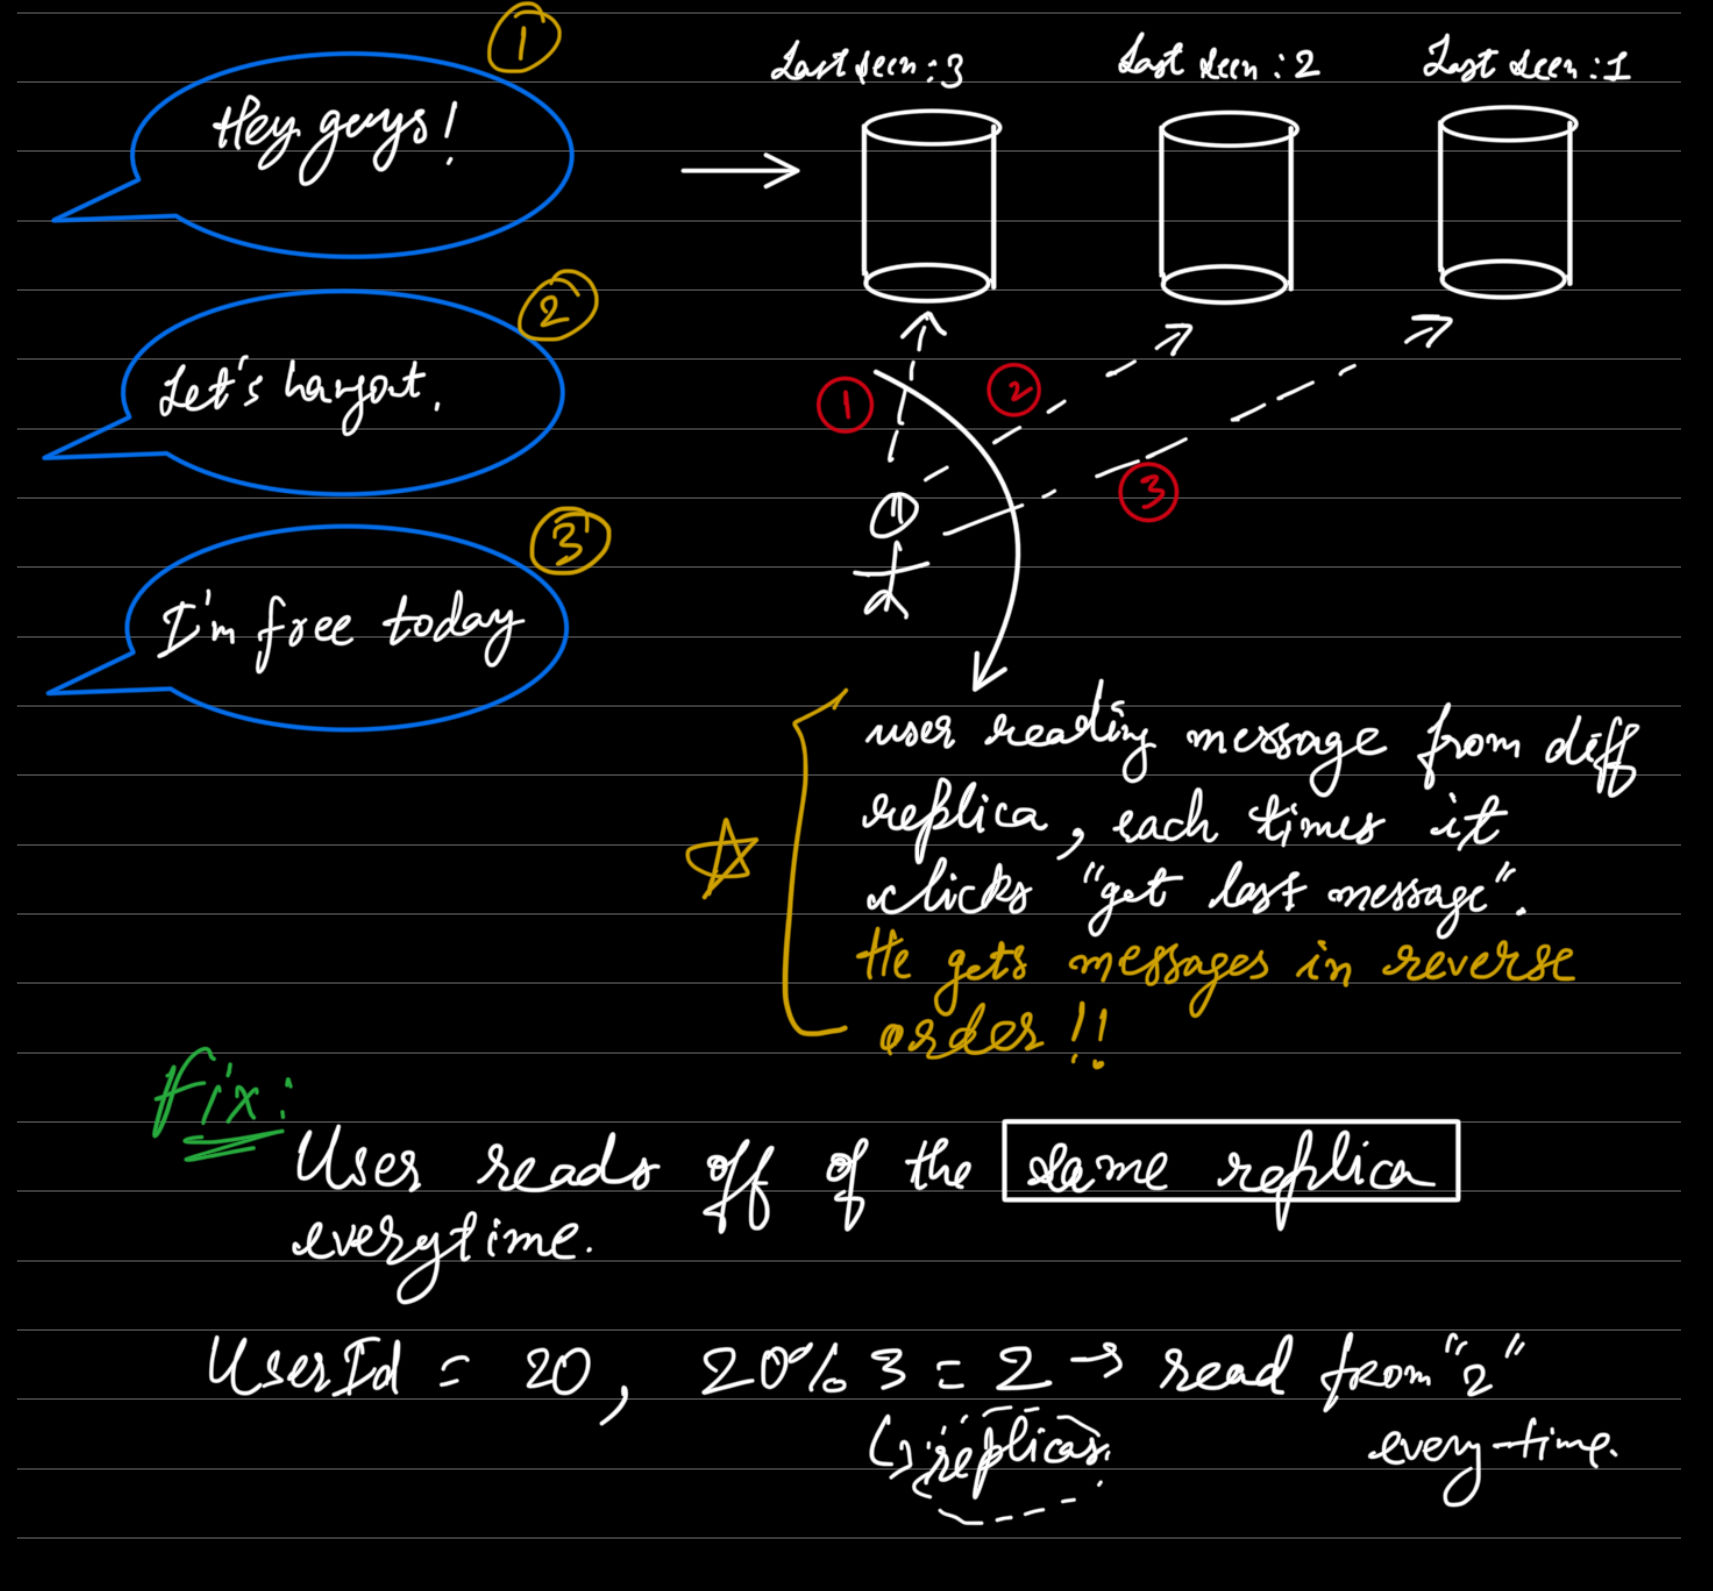 1
Hey guys!
2
Let's hangout.
3
I'm free today
Last seen:3
Last seen:2
Last seen:1
1
2
3
user reading message from diff
replica, each times it
clicks "get last message".
He gets messages in reverse
order!!
Fix:
User reads off of the same replica
everytime.
UserId = 20, 20% 3 = 2 → read from "2"
replicas.
every-time.